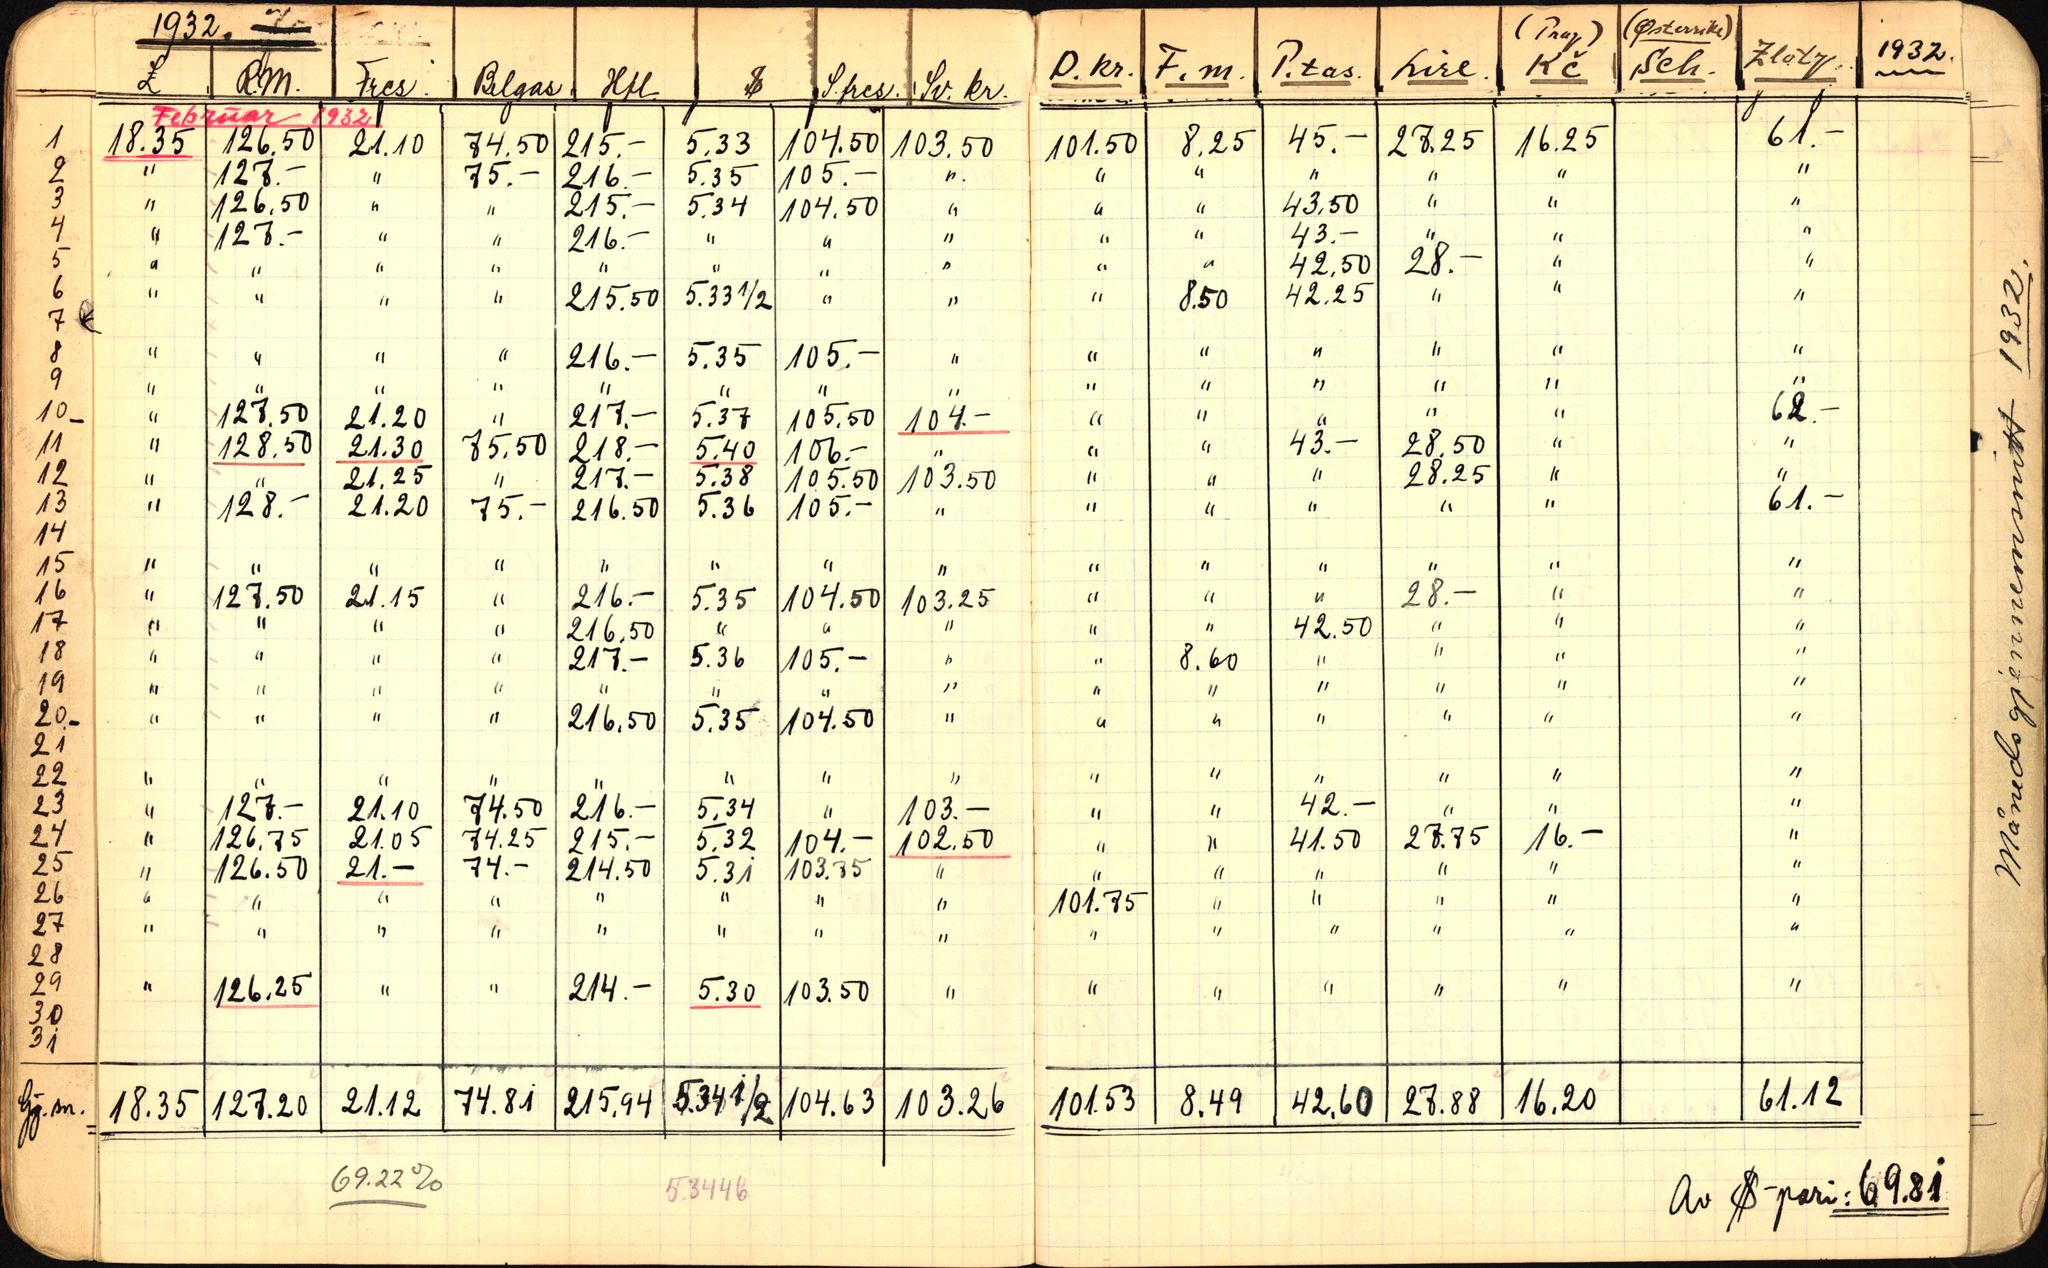 1932.
£ R.M. Frcs. Belgas Hfl. $ S.frcs. Sv. kr. D. kr. F. m. P.tas. Lire. (Prag) Kč (Østerrike) Sch. Zloty. 1932.
Februar 1932
1 18.35 126.50 21.10 74.50 215.- 5.33 104.50 103.50 101.50 8.25 45.- 27.25 16.25 61.-
2 " 127.- " 75.- 216.- 5.35 105.- " " " " " " "
3 " 126.50 " " 215.- 5.34 104.50 " " " 43.50 " " "
4 " 127.- " " 216.- " " " " " 43.- " " "
5 " " " " " " " " " " 42.50 28.- " "
6 " " " " 215.50 5.33 1/2 " " " 8.50 42.25 " " "
7
8 " " " " 216.- 5.35 105.- " " " " " " "
9 " " " " " " " " " " " " " "
10- " 127.50 21.20 " 217.- 5.37 105.50 104.- " " " " " 62.-
11 " 128.50 21.30 75.50 218.- 5.40 106.- " " " 43.- 28.50 " "
12 " " 21.25 " 217.- 5.38 105.50 103.50 " " " 28.25 " "
13 " 128.- 21.20 75.- 216.50 5.36 105.- " " " " " " 61.-
14
15 " " " " " " " " " " " " "
16 " 127.50 21.15 " 216.- 5.35 104.50 103.25 " " " 28.- " "
17 " " " " 216.50 " " " " " 42.50 " " "
18 " " " " 217.- 5.36 105.- " " 8.60 " " " "
19 " " " " " " " " " " " " " "
20.- " " " " 216.50 5.35 104.50 " " " " " " "
21
22 " " " " " " " " " " " " " "
23 " 127.- 21.10 74.50 216.- 5.34 " 103.- " " 42.- " " "
24 " 126.75 21.05 74.25 215.- 5.32 104.- 102.50 " " 41.50 27.75 16.- "
25 " 126.50 21.- 74.- 214.50 5.31 103.75 " " " " " " "
26 " " " " " " " " 101.75 " " " " "
27 " " " " " " " " " " " " " "
28
29 " 126.25 " " 214.- 5.30 103.50 " " " " " " "
30
31
Gj. sn. 18.35 127.20 21.12 74.81 215.94 5.34 1/2 104.63 103.26 101.53 8.49 42.60 27.88 16.20 61.12
69.22%
5.3446
Av $-pari: 69.81
Månedsgjennemsnitt 1932.